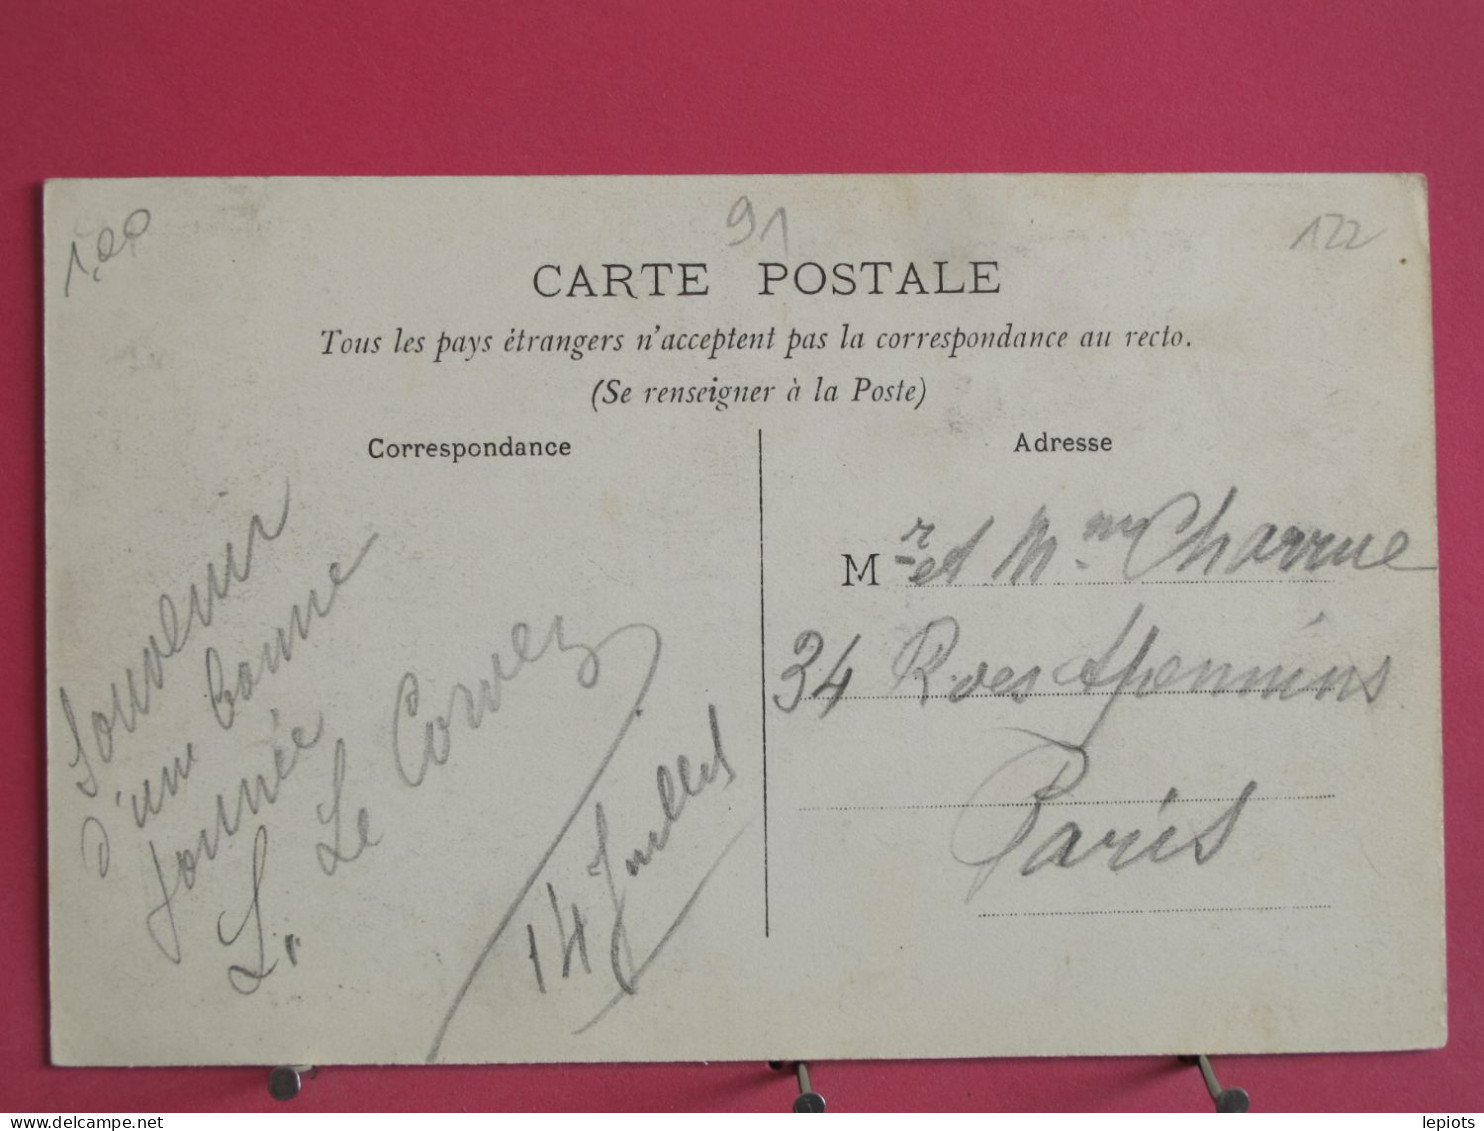 1,00
91
122
CARTE POSTALE
Tous les pays étrangers n'acceptent pas la correspondance au recto.
(Se renseigner à la Poste)
Correspondance
Souvenir
d'une bonne
journée
L. Le Corvez
14 Juillet
Adresse
M r et Mme Charrue
34 R. des Apennins
Paris
lepiots